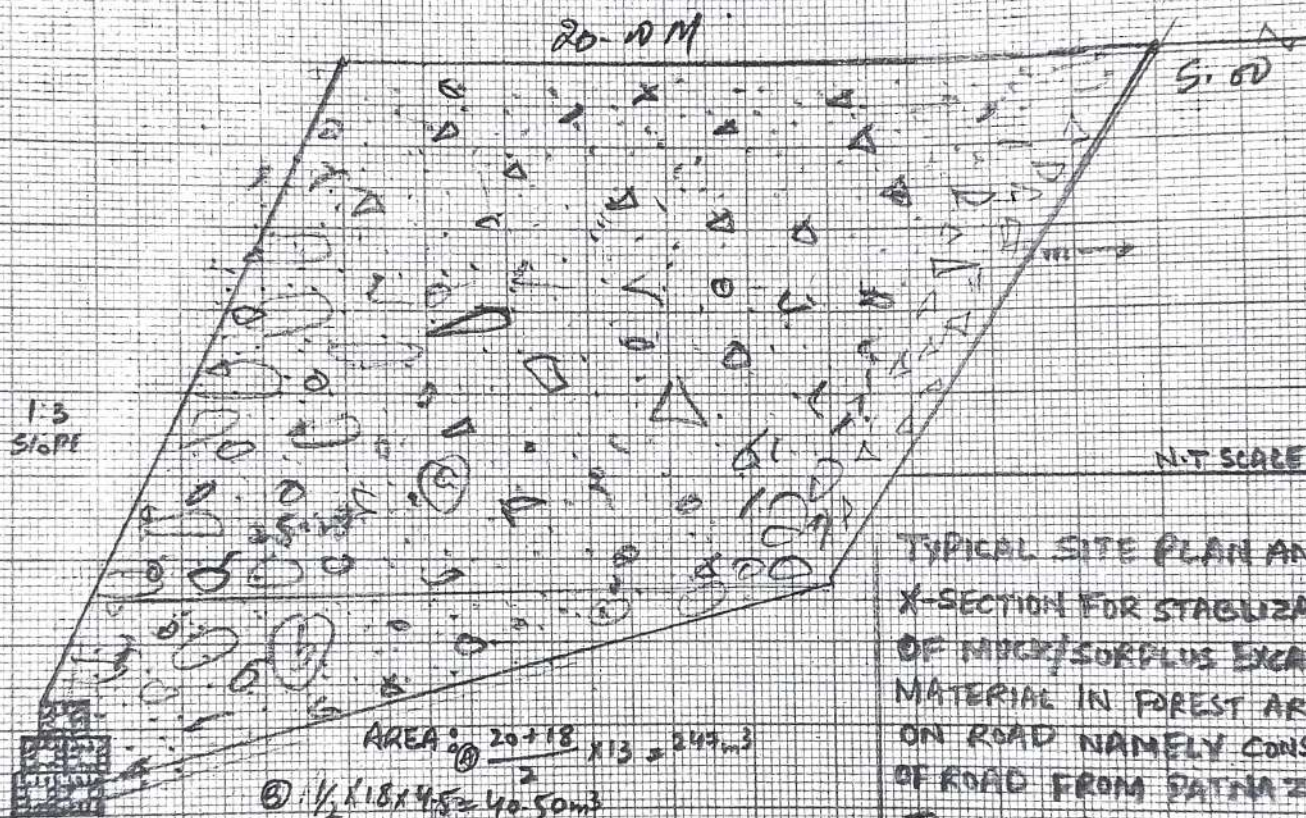 20-00 M
5.00
1:3
SLOPE
N.T SCALE
(a)
TYPICAL SITE PLAN AN
X-SECTION FOR STABLIZA
OF MUCK/SURPLUS EXCA
MATERIAL IN FOREST AR
ON ROAD NAMELY CONS
OF ROAD FROM PATNAZ
(b)
AREA: (A) 20+18/2 X13 = 247m³
(B). 1/2 X 18 X 4.5 = 40.50m³